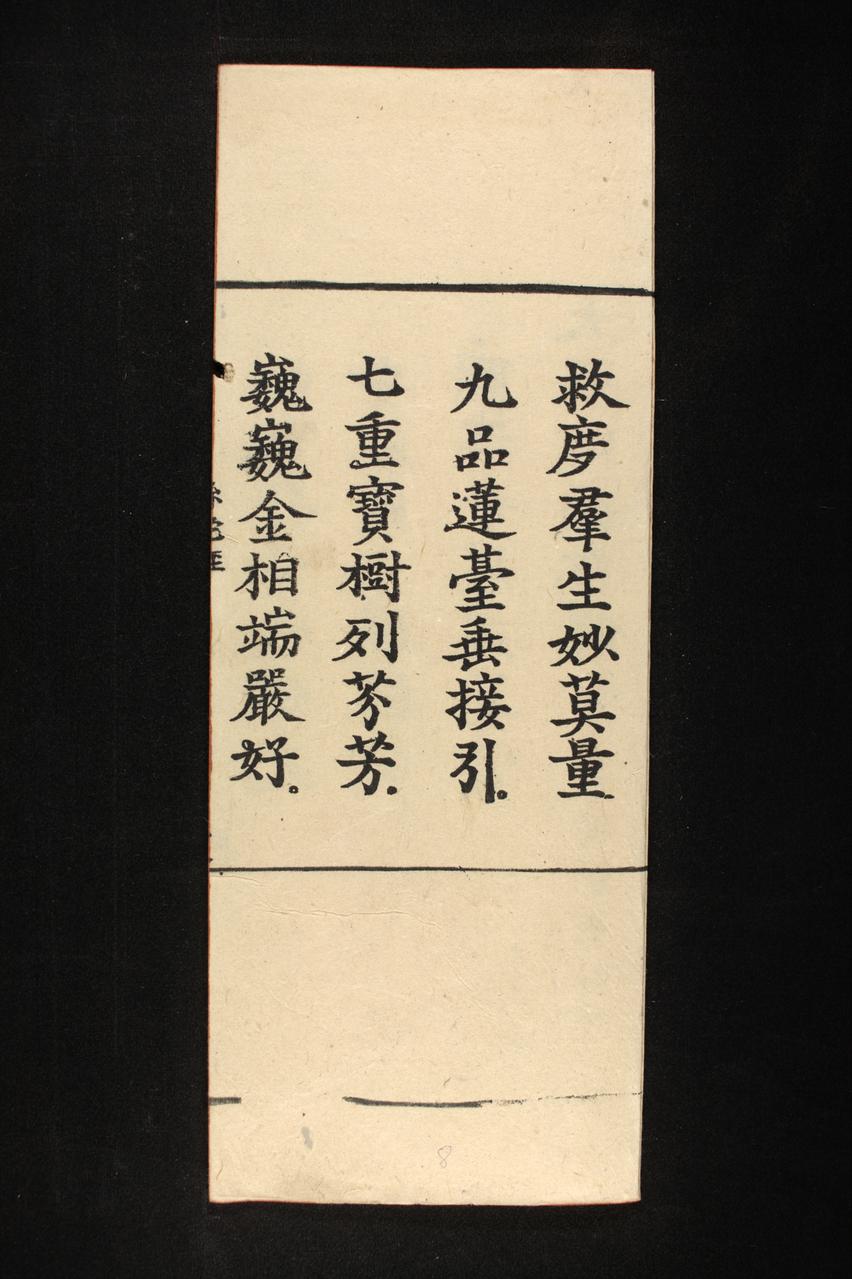 救度羣生妙莫量
九品蓮臺垂接引。
七重寶樹列芬芳.
巍巍金相端嚴好。
8